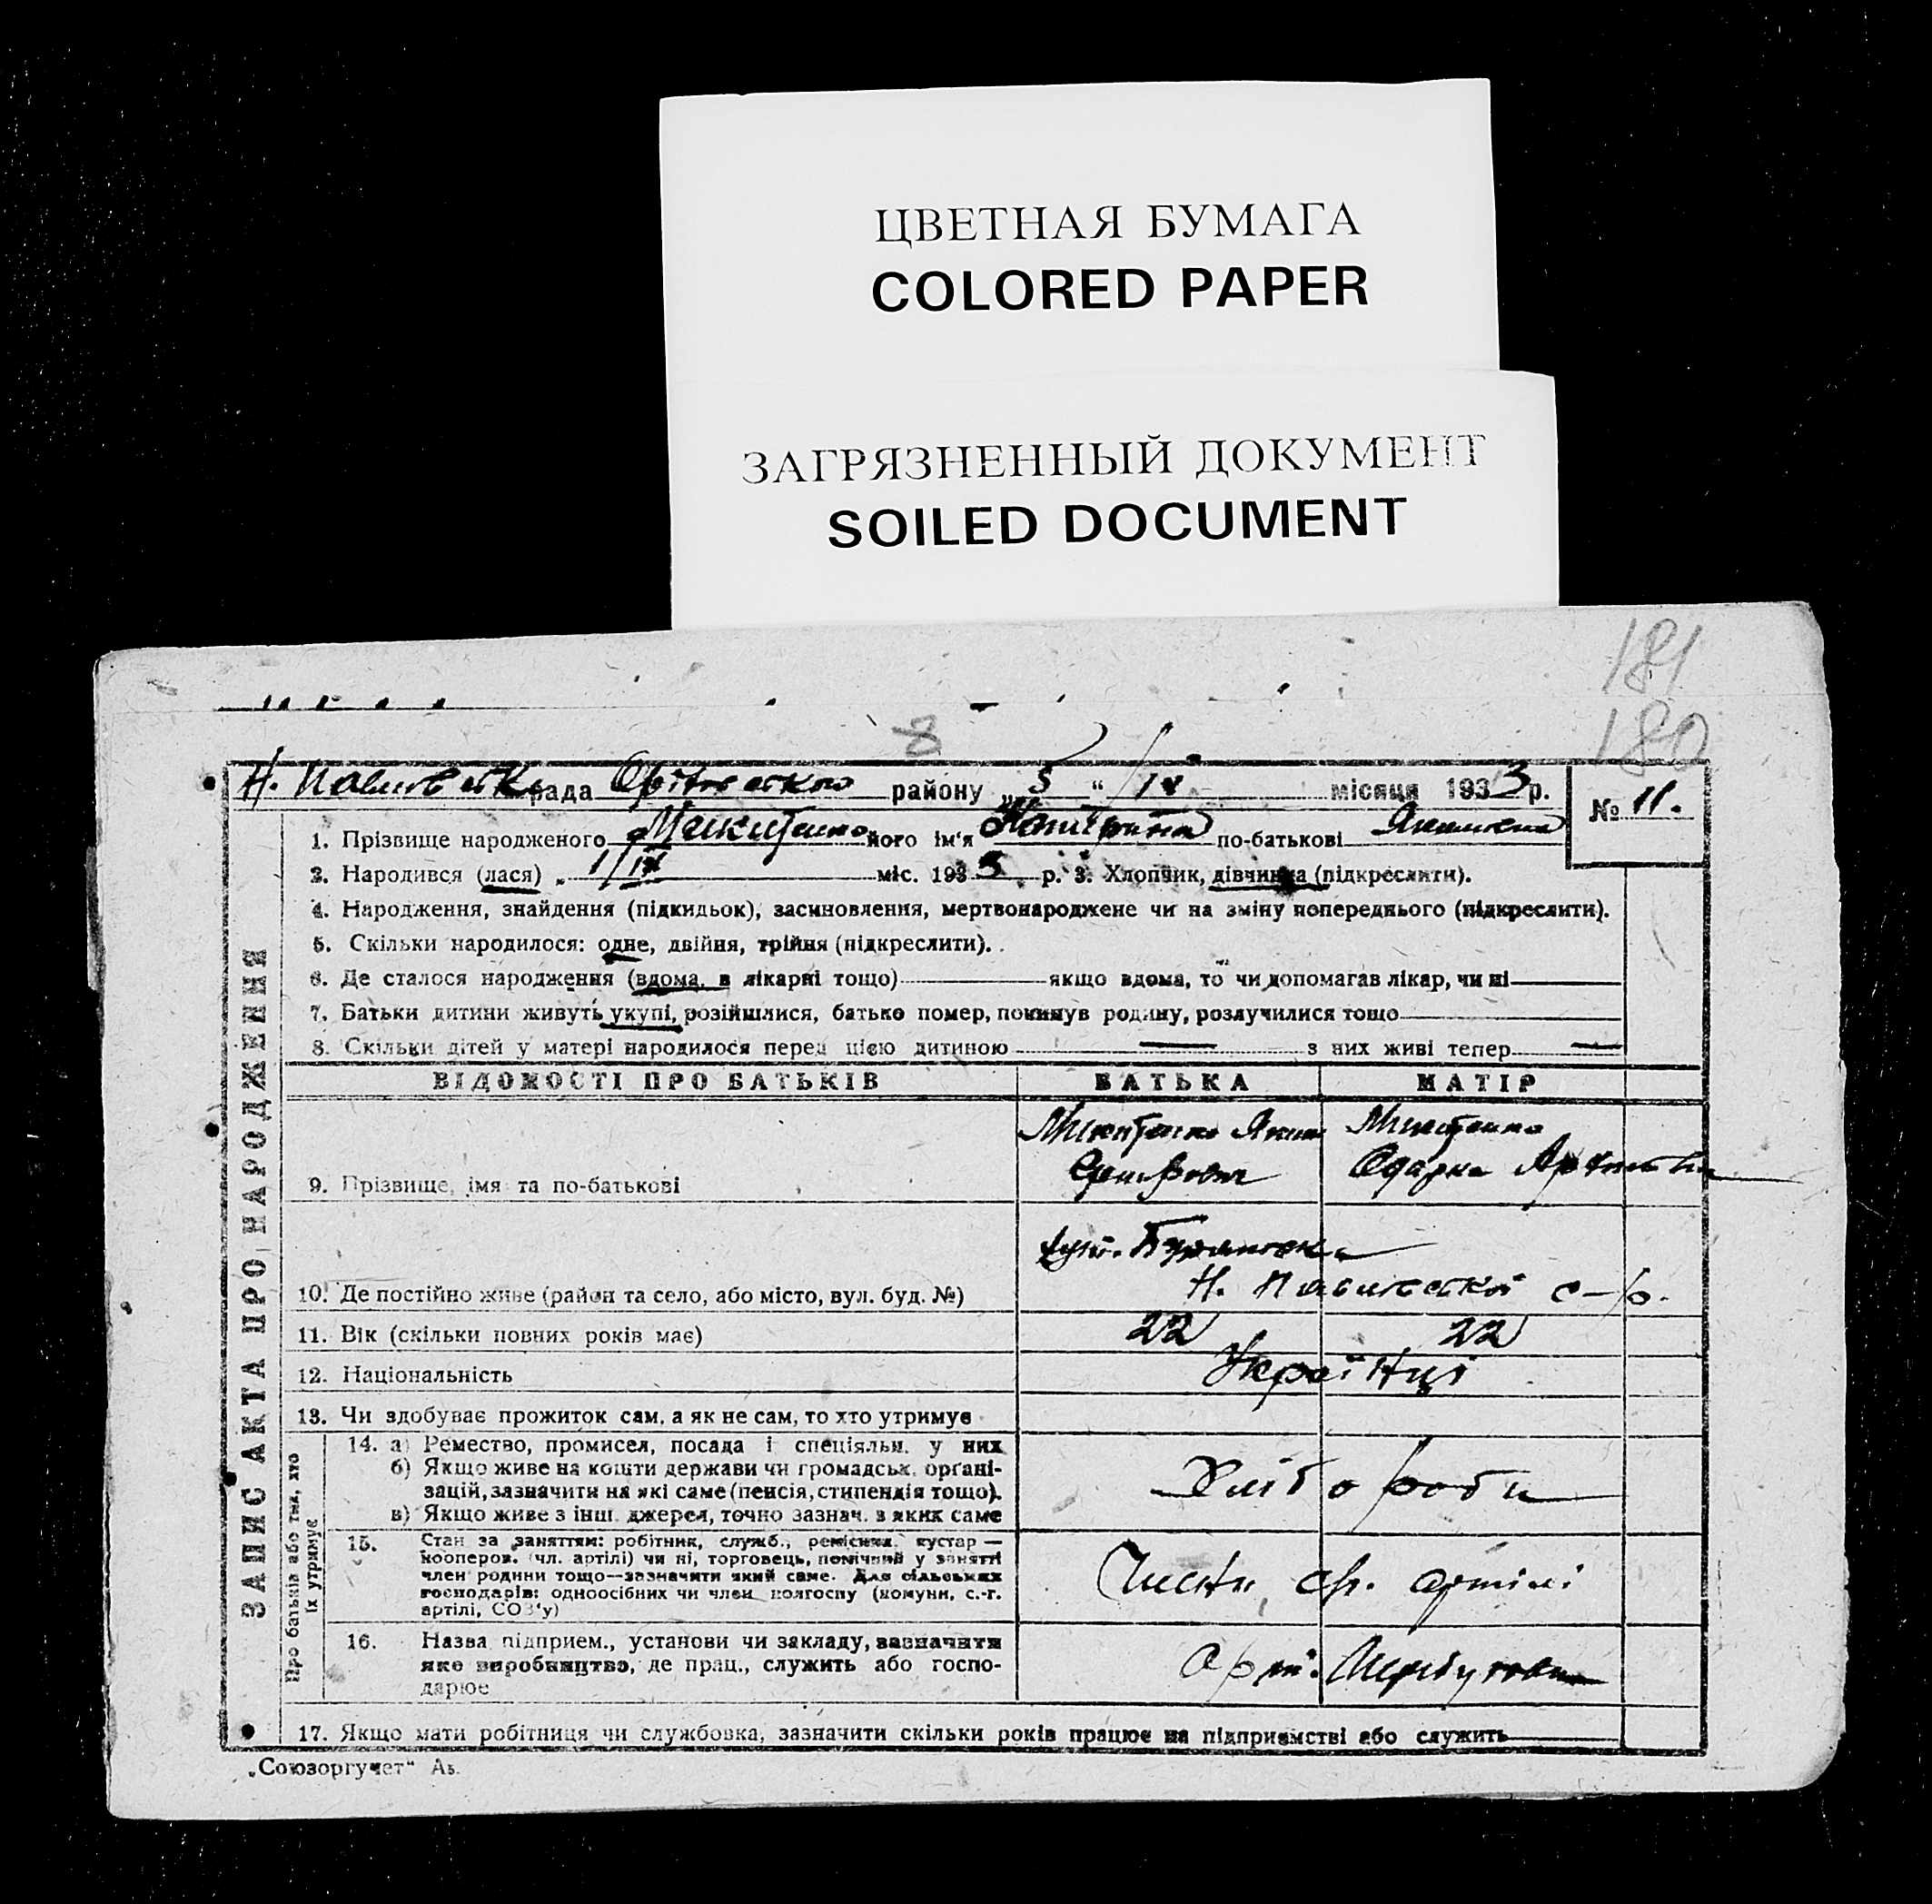 ЦВЕТНАЯ БУМАГА
COLORED PAPER
ЗАГРЯЗНЕННЫЙ ДОКУМЕНТ
SOILED DOCUMENT
181
180
8
Н. рада району „5“ місяця 1933 р.
№ 11.
1. Прізвище народженого Микитенко його ім'я Катерина по-батькові Якимівна
2. Народився (лася) „ міс. 1933 р. 3. Хлопчик, дівчинка (підкреслити).
4. Народження, знайдення (підкидьок), засиновлення, мертвонароджене чи на зміну попереднього (підкреслити).
5. Скільки народилося: одне, двійня, трійня (підкреслити).
6. Де сталося народження (вдома, в лікарні тощо) якщо вдома, то чи допомагав лікар, чи ні
7. Батьки дитини живуть укупі, розійшлися, батько помер, покинув родину, розлучилися тощо
8. Скільки дітей у матері народилося перед цією дитиною — з них живі тепер —
ЗАПИС АКТА ПРО НАРОДЖЕННЯ
ВІДОМОСТІ ПРО БАТЬКІВ БАТЬКА МАТІР
9. Прізвище, імя та по-батькові
Микитенко Яким Микитенко
Одарка
10. Де постійно живе (район та село, або місто, вул. буд. №)
хут.
Н. с-р.
11. Вік (скільки повних років має) 22 22
12. Національність Українці
13. Чи здобуває прожиток сам, а як не сам, то хто утримує
Про батьків або тих, хто їх утримує
14. а) Ремество, промисел, посада і спеціяльн. у них
б) Якщо живе на кошти держави чи громадськ. органі-
зацій, зазначити на які саме (пенсія, стипендія тощо).
в) Якщо живе з інш. джерел, точно зазнач. з яких саме
Хлібороби
15. Стан за заняттям: робітник, служб., ремісник, кустар —
кооперов. (чл. артілі) чи ні, торговець, помічний у занятті
член родини тощо—зазначити який саме. Для сільських
господарів: одноосібних чи член колгоспу (комуни, с.-г.
артілі, СОЗ'у)
Члени артілі
16. Назва підприєм., установи чи закладу, зазначити
яке виробництво, де прац., служить або госпо-
дарює
Арт.
17. Якщо мати робітниця чи службовка, зазначити скільки років працює на підприємстві або служить
„Союзоргучет“